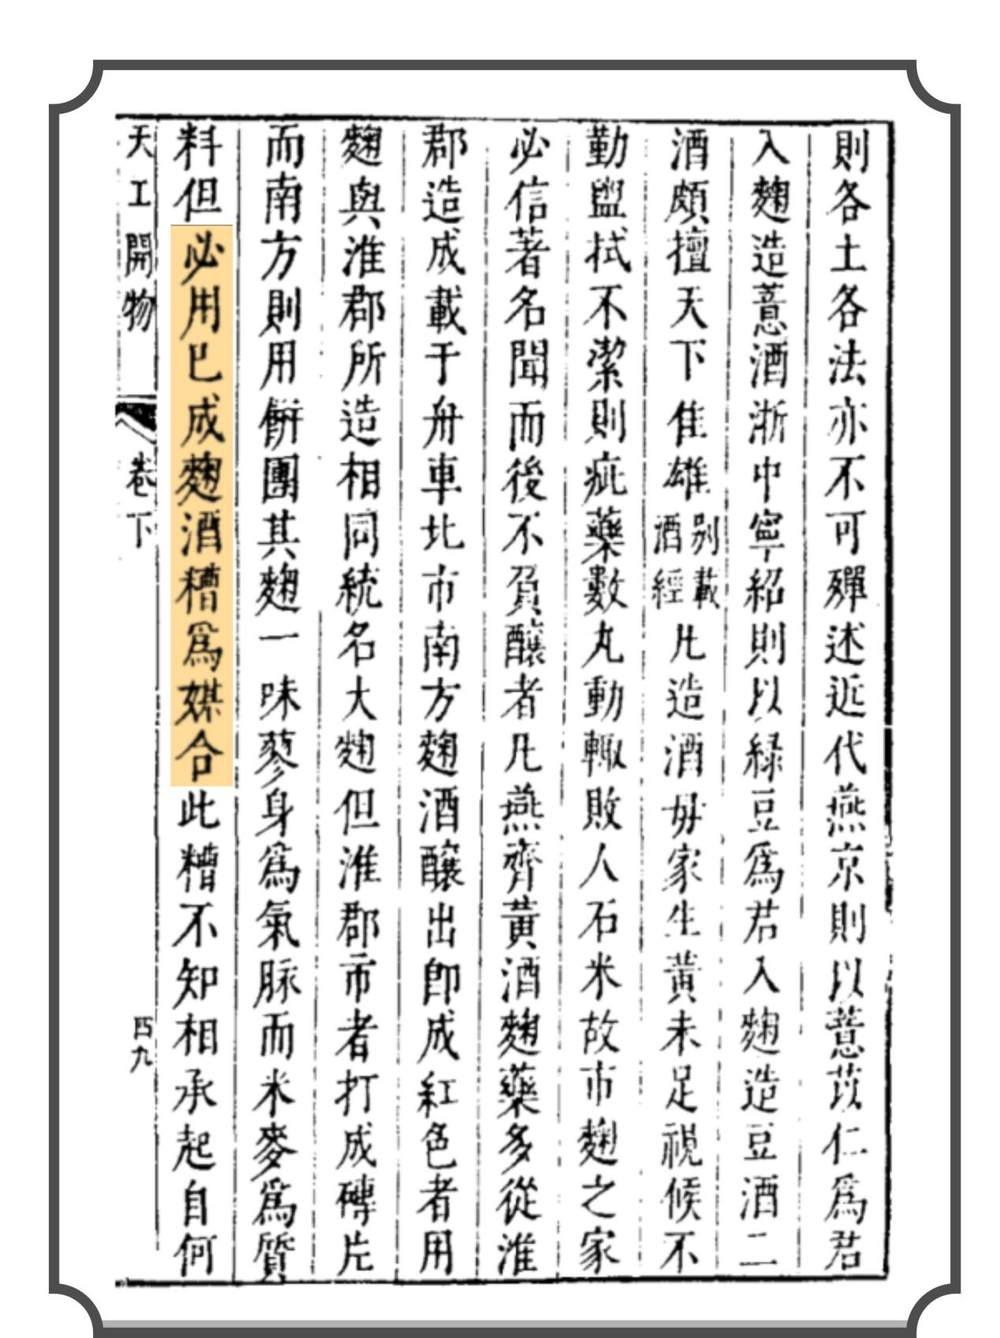 則各土各法亦不可殫述近代燕京則以薏苡仁爲君
入麴造薏酒浙中寧紹則以綠豆爲君入麴造豆酒二
酒頗擅天下佳雄別載酒經凡造酒毋家生黃未足視候不
勤盥拭不潔則疵藥數丸動輙敗人石米故市麴之家
必信著名聞而後不負釀者凡燕齊黃酒麴藥多從淮
郡造成載于舟車北市南方麴酒釀出卽成紅色者用
麴與淮郡所造相同統名大麴但淮郡市者打成磚片
而南方則用餅團其麴一味蓼身爲氣脉而米麥爲質
料但必用已成麴酒糟爲媒合此糟不知相承起自何
天工開物 卷下 四九